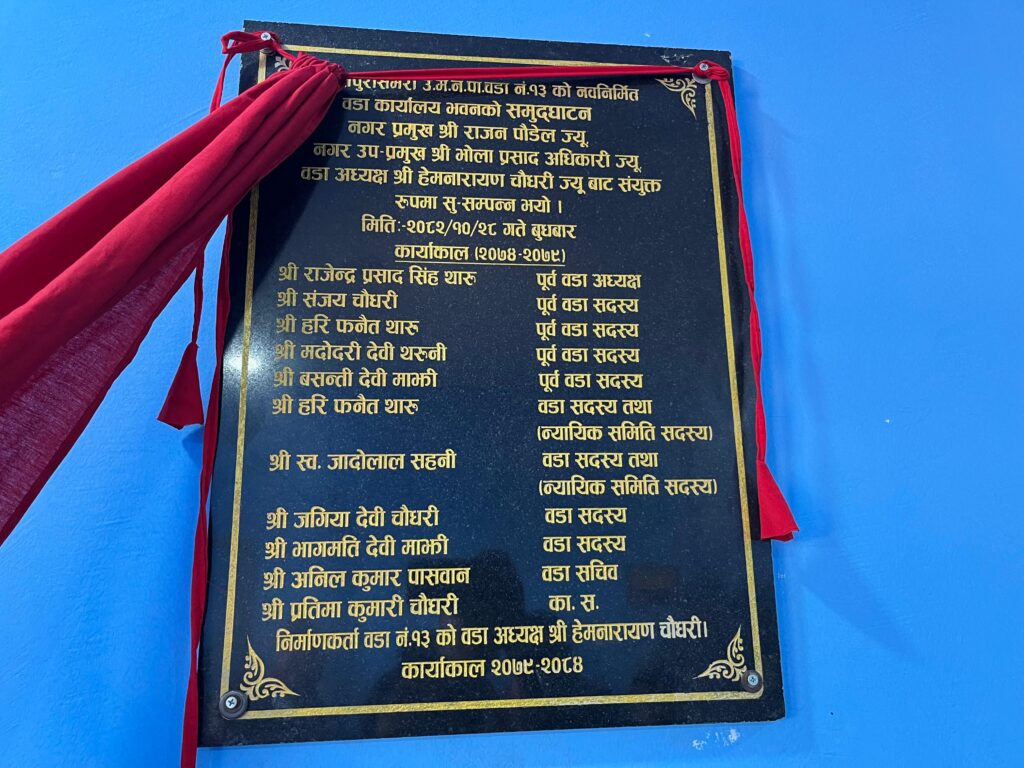 उ.म.न.पा.वडा नं.१३ को नवनिर्मित
वडा कार्यालय भवनको समुद्घाटन
नगर प्रमुख श्री राजन पौडेल ज्यू,
नगर उप-प्रमुख श्री भोला प्रसाद अधिकारी ज्यू,
वडा अध्यक्ष श्री हेमनारायण चौधरी ज्यू बाट संयुक्त
रुपमा सु-सम्पन्न भयो ।
मिति:-२०८२/१०/२८ गते बुधबार
कार्याकाल (२०७४-२०७९)
श्री राजेन्द्र प्रसाद सिंह थारू पूर्व वडा अध्यक्ष
श्री संजय चौधरी पूर्व वडा सदस्य
श्री हरि फनैत थारू पूर्व वडा सदस्य
श्री मदोदरी देवी थरुनी पूर्व वडा सदस्य
श्री बसन्ती देवी माझी पूर्व वडा सदस्य
श्री हरि फनैत थारू वडा सदस्य तथा
(न्यायिक समिति सदस्य)
श्री स्व. जादोलाल सहनी वडा सदस्य तथा
(न्यायिक समिति सदस्य)
श्री जगिया देवी चौधरी वडा सदस्य
श्री भागमति देवी माझी वडा सदस्य
श्री अनिल कुमार पासवान वडा सचिव
श्री प्रतिमा कुमारी चौधरी का. स.
निर्माणकर्ता वडा नं.१३ को वडा अध्यक्ष श्री हेमनारायण चौधरी।
कार्याकाल २०७९-२०८४